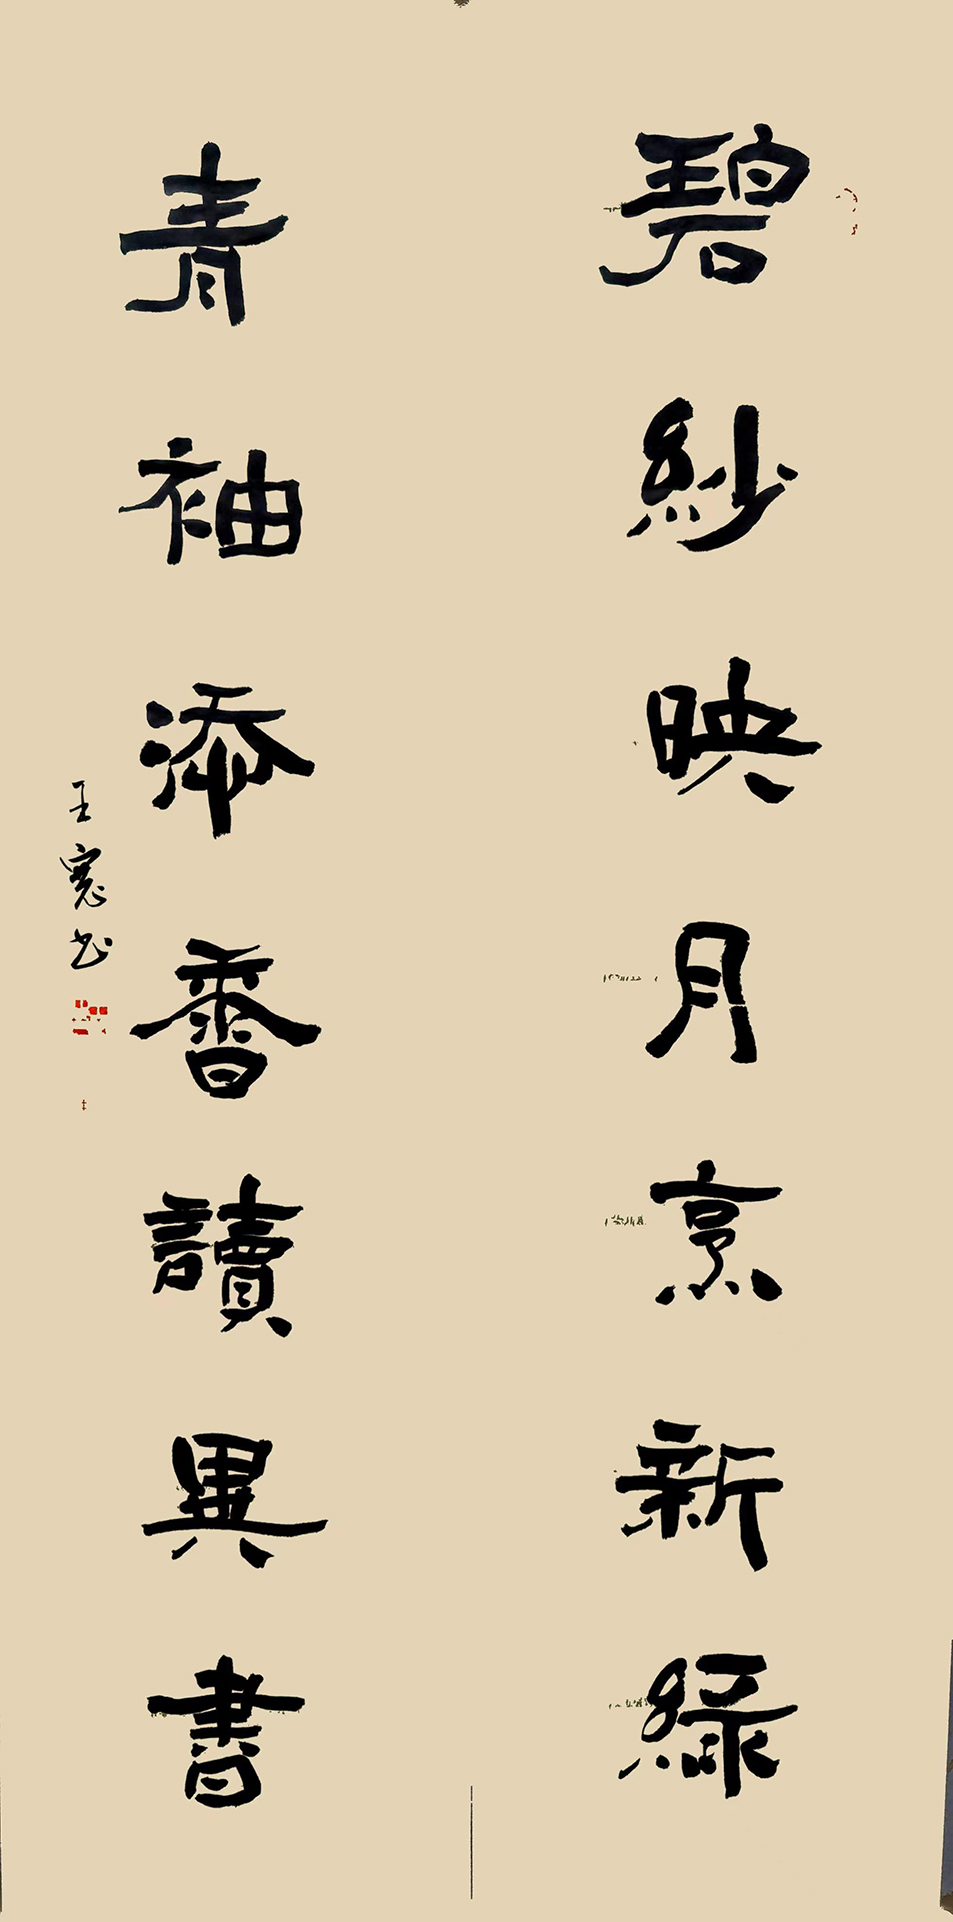 碧紗映月烹新綠
青袖添香讀異書
王寬书